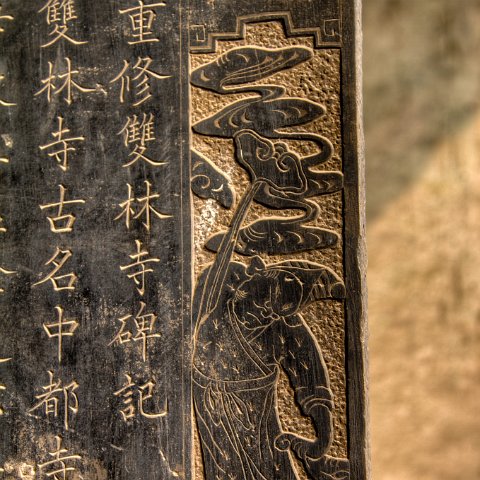 重修雙林寺碑記
雙林寺古名中都寺